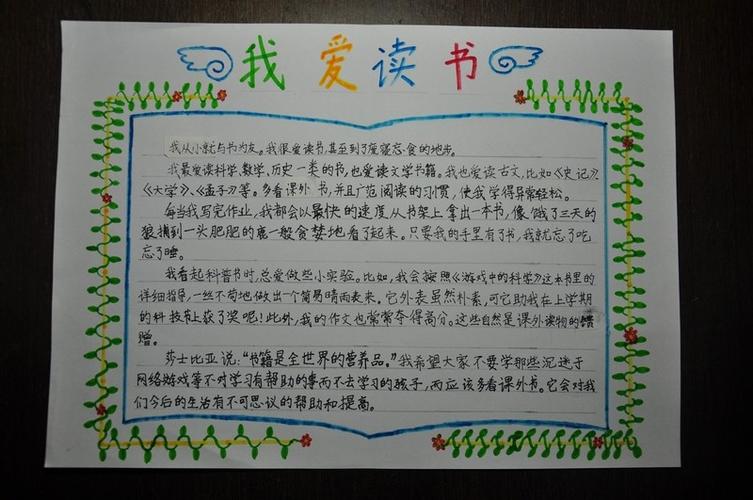 我爱读书
我从小就与书为友。我很爱读书,甚至到了废寝忘食的地步。
我最爱读科学、数学、历史一类的书,也爱读文学书籍。我也爱读古文,比如《史记》
《大学》、《孟子》等。多看课外书,并且广范阅读的习惯,使我学得异常轻松。
每当我写完作业,我都会以最快的速度从书架上拿出一本书,像饿了三天的
狼捕到一头肥肥的鹿一般贪婪地看了起来。只要我的手里有了书,我就忘了吃
忘了睡。
我看起科普书时,总爱做些小实验。比如,我会按照《游戏中的科学》这本书里的
详细指导,一丝不苟地做出个简易晴雨表来。它外表虽然朴素,可它助我在上学期
的科技节上获了奖呢!此外,我的作文也常常夺得高分。这些自然是课外读物的馈
赠。
莎士比亚说:“书籍是全世界的营养品。”我希望大家不要学那些沉迷于
网络游戏等不对学习有帮助的事而不去学习的孩子,而应该多看课外书。它会对我
们今后的生活有不可思议的帮助和提高。